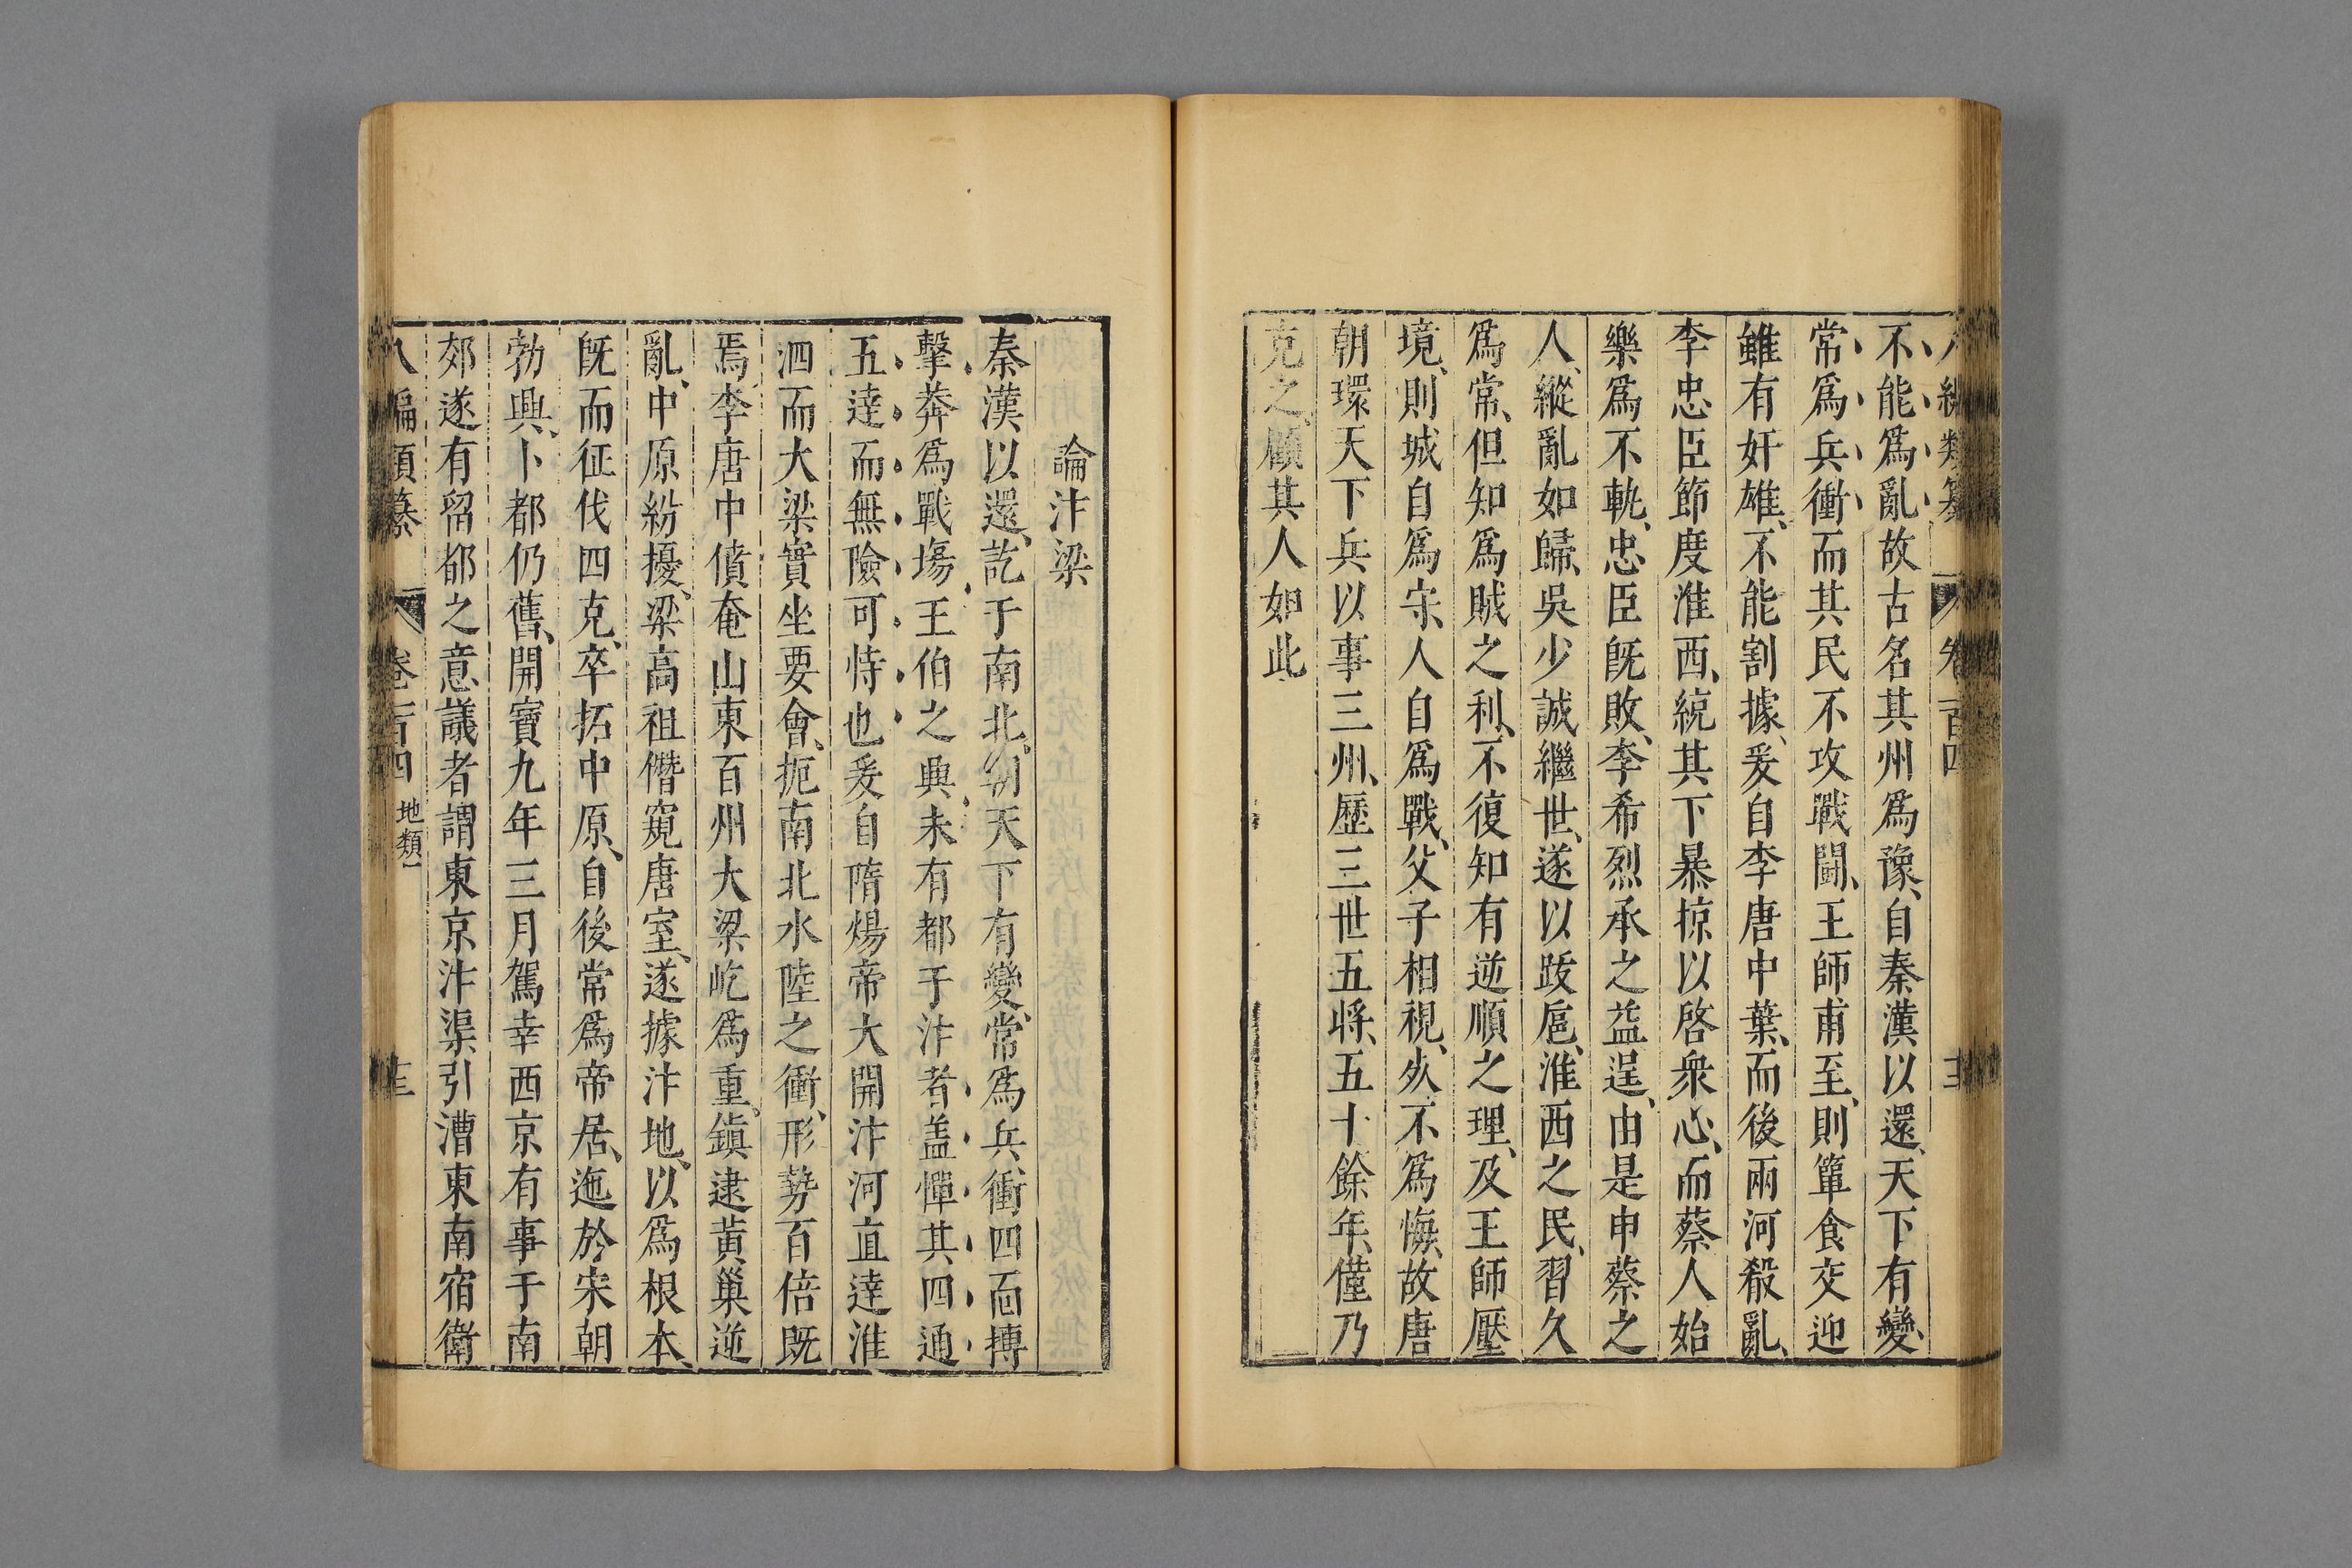 不能爲亂故古名其州爲豫、自秦漢以還、天下有變、
常爲兵衝而其民不攻戰鬪、王師甫至、則簞食交迎
雖有奸雄、不能割據、爰自李唐中葉、而後兩河殺亂、
李忠臣節度淮西、統其下暴掠以啓衆心、而蔡人始
樂爲不軌、忠臣旣敗、李希烈承之益逞、由是申蔡之
人、縱亂如歸、吳少誠繼世、遂以跋扈、淮西之民、習久
爲常、但知爲賊之利、不復知有逆順之理、及王師壓
境、則城自爲守、人自爲戰、父子相視、夾不爲悔、故唐
朝環天下兵以事三州、歷三世五將、五十餘年、僅乃
克之、顧其人如此
論汴梁
秦漢以還、訖于南北、朝天下有變、常爲兵衝四面搏
擊莽爲戰塲、王伯之興、未有都于汴者盖憚其四通
五達而無險可恃也爰自隋煬帝大開汴河直達淮
泗而大梁實坐要會、扼南北水陸之衝、形勢百倍旣
焉、李唐中僨奄山東百州大梁屹爲重、鎮逮黃巢逆
亂、中原紛擾、梁高祖僭窺唐室、遂據汴地、以爲根本、
旣而征伐四克、卒拓中原、自後常爲帝居、迤於宋朝
勃興、卜都仍舊、開寶九年三月駕幸西京有事于南
郊遂有留都之意議者謂東京汴渠引漕東南宿衛
八編類纂 卷一百四 地類一 十三